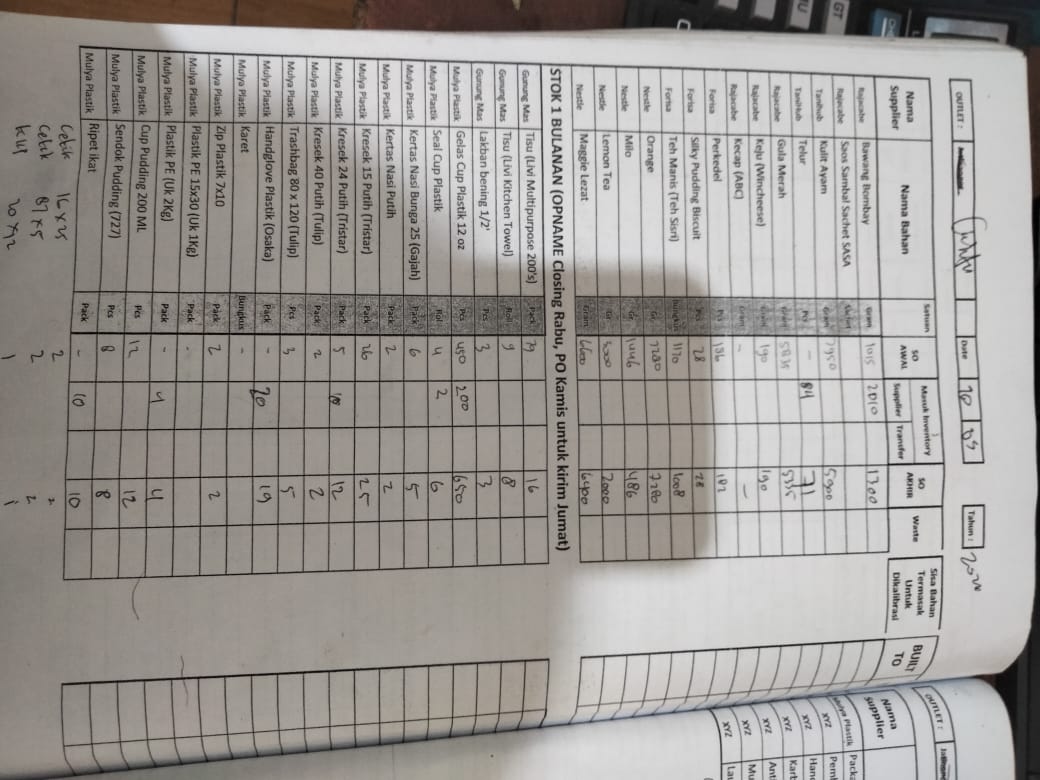 OUTLET : Date 10 09 Tahun :
Nama Supplier Nama Bahan Satuan SO AWAL Masuk Inventory Supplier Transfer SO AKHIR Waste Sisa Bahan Termasak Untuk Dikalibrasi BUILT TO
Rajacabe Bawang Bombay Gram 1015 2010 1300
Rajacabe Saos Sambal Sachet SASA Sachet
Tanihub Kulit Ayam Gram 7950 5900
Tanihub Telur Pcs - 84 71
Rajacabe Gula Merah Gram 5835 5335
Rajacabe Keju (Wincheese) Gram 190 190
Rajacabe Kecap (ABC) Gram - -
Forisa Perkedel Pcs 186 182
Forisa Silky Pudding Biscuit Pcs 28 28
Forisa Teh Manis (Teh Sisri) Bungkus 1170 1008
Nestle Orange Gr 7280 7280
Nestle Milo Gr 1446 486
Nestle Lemon Tea Gr 3000 2000
Nestle Maggie Lezat Gram 6600 6400
STOK 1 BULANAN (OPNAME Closing Rabu, PO Kamis untuk kirim Jumat)
Gunung Mas Tisu (Livi Multipurpose 200's) Pack 16
Gunung Mas Tisu (Livi Kitchen Towel) Roll 9 8
Gunung Mas Lakban bening 1/2' Pcs 3 3
Mulya Plastik Gelas Cup Plastik 12 oz Pcs 450 200 650
Mulya Plastik Seal Cup Plastik Roll 4 2 6
Mulya Plastik Kertas Nasi Bunga 25 (Gajah) Pack 6 5
Mulya Plastik Kertas Nasi Putih Pack 2 2
Mulya Plastik Kresek 15 Putih (Tristar) Pack 26 25
Mulya Plastik Kresek 24 Putih (Tristar) Pack 5 10 12
Mulya Plastik Kresek 40 Putih (Tulip) Pack 2 2
Mulya Plastik Trashbag 80 x 120 (Tulip) Pcs 3 5
Mulya Plastik Handglove Plastik (Osaka) Pack - 20 19
Mulya Plastik Karet Bungkus -
Mulya Plastik Zip Plastik 7x10 Pack 2 2
Mulya Plastik Plastik PE 15x30 (Uk 1Kg) Pack -
Mulya Plastik Plastik PE (Uk 2Kg) Pack - 4 4
Mulya Plastik Cup Pudding 200 ML Pcs 12 12
Mulya Plastik Sendok Pudding (727) Pcs 8 8
Mulya Plastik Ripet ikat Pack - 10 10
16 x 25 2 2
2 2
20 x 12 1 1
OUTLET :
Nama Supplier
Mulya Plastik Pack
XYZ
XYZ
XYZ
XYZ
XYZ
XYZ
GT